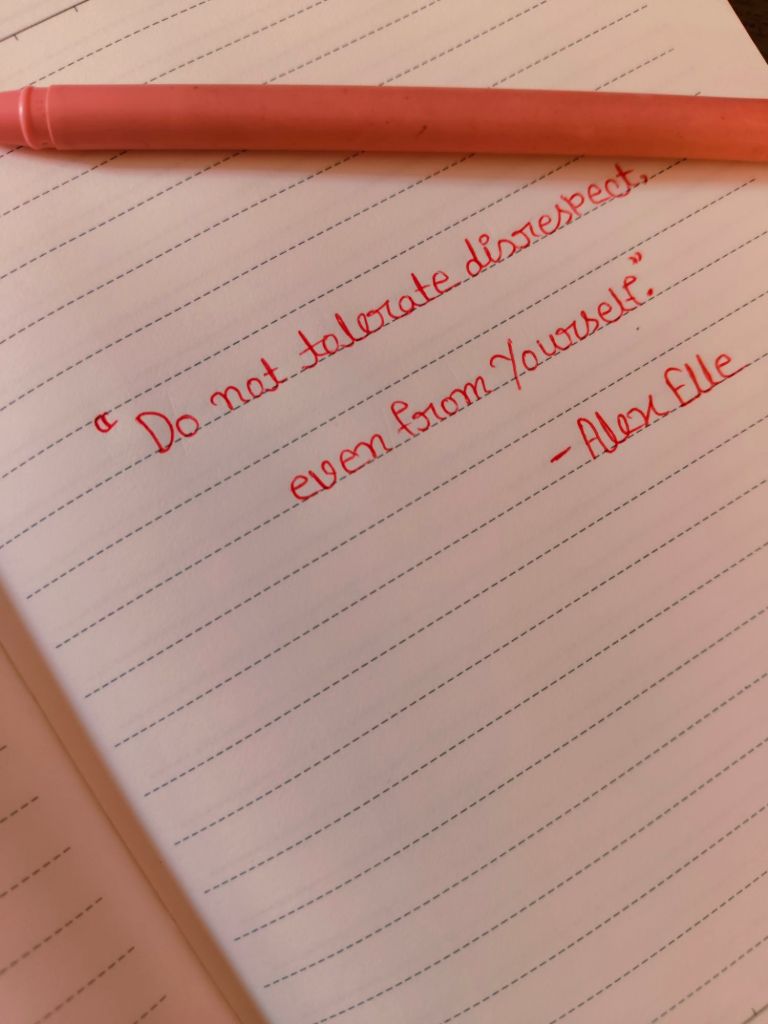 “Do not tolerate disrespect,
even from Yourself.”
- Alex Elle